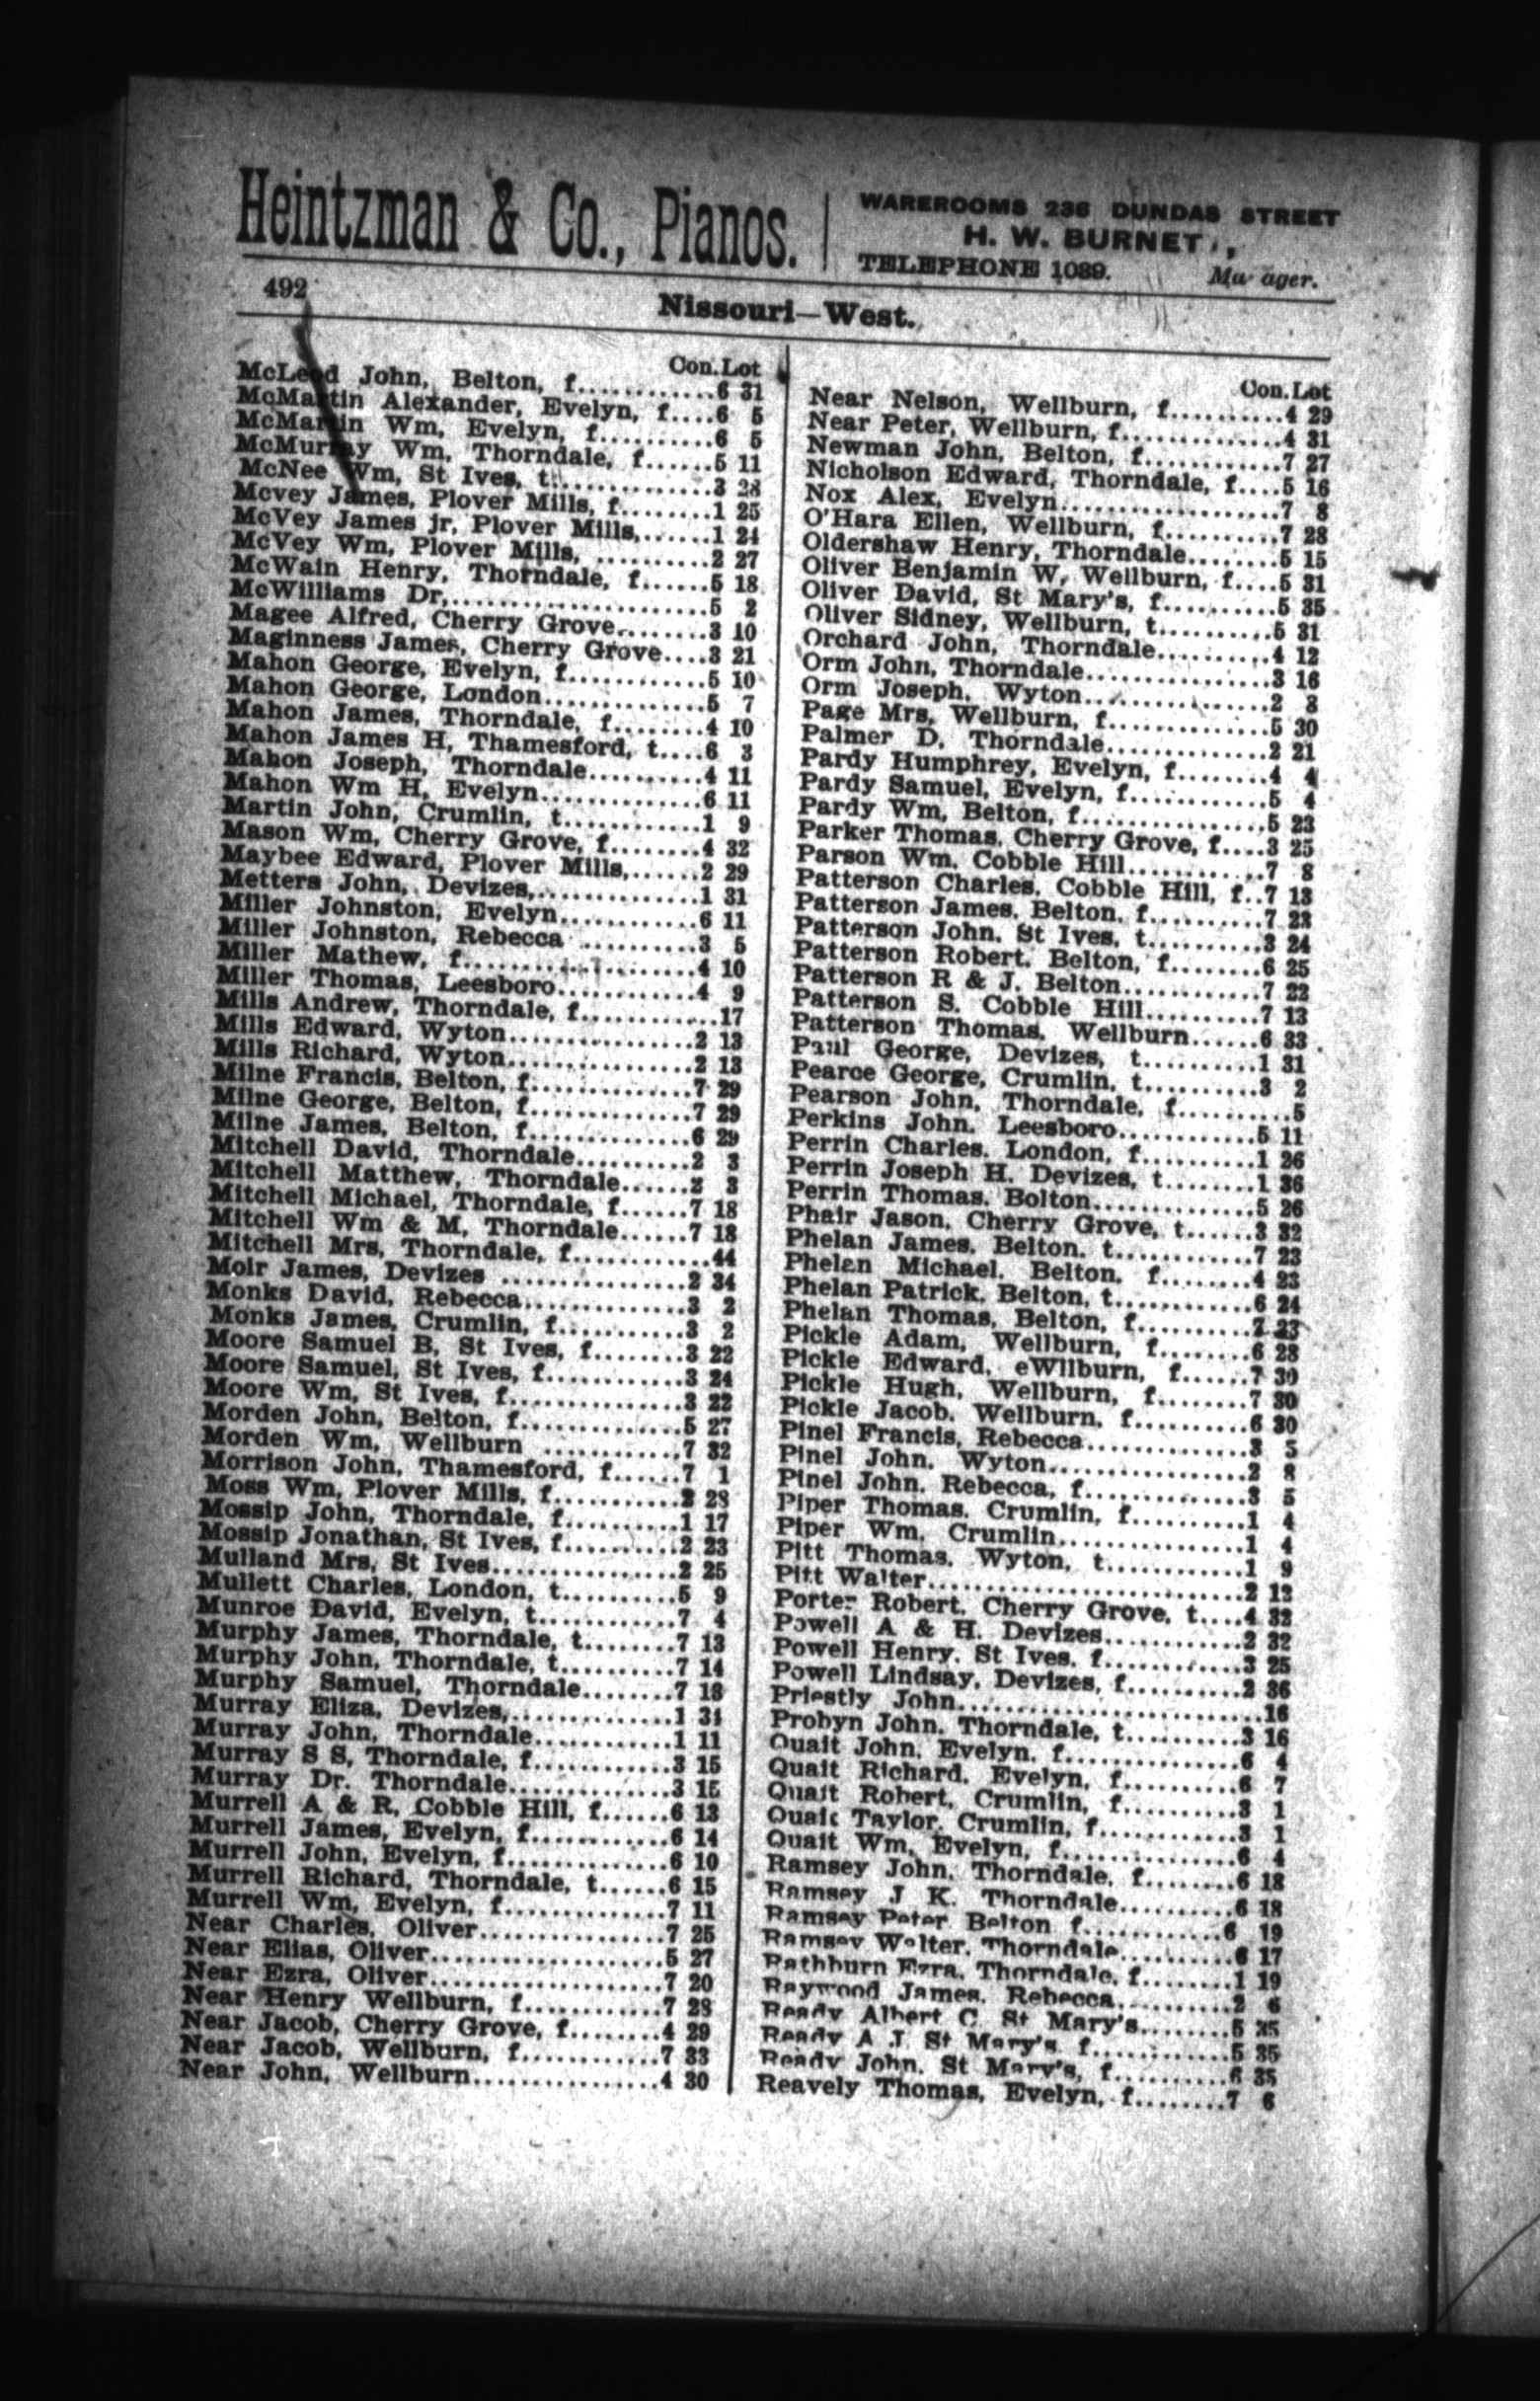 Heintzman & Co., Pianos.
WAREROOMS 236 DUNDAS STREET
H. W. BURNETT,
TELEPHONE 1089. Manager.
492
Nissouri—West.
Con. Lot
McLeod John, Belton, f............6 31
McMartin Alexander, Evelyn, f....6 5
McMartin Wm, Evelyn, f..........6 5
McMurray Wm, Thorndale, f......5 11
McNee Wm, St Ives, t..............3 28
Mcvey James, Plover Mills, f........1 25
McVey James jr, Plover Mills,......1 24
McVey Wm, Plover Mills, ..........2 27
McWain Henry, Thorndale, f......5 18
McWilliams Dr,.......................5 2
Magee Alfred, Cherry Grove........3 10
Maginness James, Cherry Grove....3 21
Mahon George, Evelyn, f............5 10
Mahon George, London..............5 7
Mahon James, Thorndale, f........4 10
Mahon James H, Thamesford, t....6 3
Mahon Joseph, Thorndale..........4 11
Mahon Wm H, Evelyn..............6 11
Martin John, Crumlin, t............1 9
Mason Wm, Cherry Grove, f........4 32
Maybee Edward, Plover Mills,......2 29
Metters John, Devizes,..............1 31
Miller Johnston, Evelyn............6 11
Miller Johnston, Rebecca ..........3 5
Miller Mathew, f....................4 10
Miller Thomas, Leesboro............4 9
Mills Andrew, Thorndale, f............17
Mills Edward, Wyton................2 13
Mills Richard, Wyton................2 13
Milne Francis, Belton, f..............7 29
Milne George, Belton, f..............7 29
Milne James, Belton, f..............6 29
Mitchell David, Thorndale..........2 3
Mitchell Matthew, Thorndale......2 3
Mitchell Michael, Thorndale, f......7 18
Mitchell Wm & M, Thorndale......7 18
Mitchell Mrs, Thorndale, f............44
Moir James, Devizes ................2 34
Monks David, Rebecca..............3 2
Monks James, Crumlin, f............3 2
Moore Samuel B, St Ives, f........3 22
Moore Samuel, St Ives, f............3 24
Moore Wm, St Ives, f................3 22
Morden John, Belton, f..............5 27
Morden Wm, Wellburn ............7 32
Morrison John, Thamesford, f......7 1
Moss Wm, Plover Mills, f..........2 28
Mossip John, Thorndale, f..........1 17
Mossip Jonathan, St Ives, f..........2 23
Mulland Mrs, St Ives................2 25
Mullett Charles, London, t..........5 9
Munroe David, Evelyn, t............7 4
Murphy James, Thorndale, t........7 13
Murphy John, Thorndale, t..........7 14
Murphy Samuel, Thorndale........7 13
Murray Eliza, Devizes,..............1 31
Murray John, Thorndale............1 11
Murray S S, Thorndale, f............3 15
Murray Dr. Thorndale..............3 15
Murrell A & R, Cobble Hill, f......6 13
Murrell James, Evelyn, f............6 14
Murrell John, Evelyn, f..............6 10
Murrell Richard, Thorndale, t......6 15
Murrell Wm, Evelyn, f..............7 11
Near Charles, Oliver................7 25
Near Elias, Oliver....................5 27
Near Ezra, Oliver....................7 20
Near Henry Wellburn, f............7 28
Near Jacob, Cherry Grove, f........4 29
Near Jacob, Wellburn, f............7 33
Near John, Wellburn................4 30
Con. Lot
Near Nelson, Wellburn, f..........4 29
Near Peter, Wellburn, f..............4 31
Newman John, Belton, f............7 27
Nicholson Edward, Thorndale, f....5 16
Nox Alex, Evelyn....................7 8
O'Hara Ellen, Wellburn, f..........7 28
Oldershaw Henry, Thorndale........5 15
Oliver Benjamin W, Wellburn, f....5 31
Oliver David, St Mary's, f..........5 35
Oliver Sidney, Wellburn, t..........5 31
Orchard John, Thorndale..........4 12
Orm John, Thorndale................3 16
Orm Joseph, Wyton................2 8
Page Mrs, Wellburn, f..............5 30
Palmer D, Thorndale..............2 21
Pardy Humphrey, Evelyn, f........4 4
Pardy Samuel, Evelyn, f............5 4
Pardy Wm, Belton, f................5 23
Parker Thomas, Cherry Grove, f....3 25
Parson Wm, Cobble Hill............7 8
Patterson Charles, Cobble Hill, f..7 13
Patterson James, Belton, f..........7 23
Patterson John, St Ives, t..........3 24
Patterson Robert, Belton, f........6 25
Patterson R & J, Belton............7 22
Patterson S. Cobble Hill..........7 13
Patterson Thomas, Wellburn......6 33
Paul George, Devizes, t..........1 31
Pearce George, Crumlin, t..........3 2
Pearson John, Thorndale, f..........5
Perkins John, Leesboro............5 11
Perrin Charles, London, f..........1 26
Perrin Joseph H. Devizes, t........1 36
Perrin Thomas, Bolton..............5 26
Phair Jason, Cherry Grove, t......3 32
Phelan James, Belton, t............7 23
Phelan Michael, Belton, f........4 23
Phelan Patrick, Belton, t............6 24
Phelan Thomas, Belton, f..........7 23
Pickle Adam, Wellburn, f........6 28
Pickle Edward, eWllburn, f......7 30
Pickle Hugh, Wellburn, f........7 30
Pickle Jacob, Wellburn, f..........6 30
Pinel Francis, Rebecca..............3 5
Pinel John, Wyton..................2 8
Pinel John, Rebecca, f..............3 5
Piper Thomas, Crumlin, f..........1 4
Piper Wm, Crumlin................1 4
Pitt Thomas, Wyton, t............1 9
Pitt Walter..........................2 12
Porter Robert, Cherry Grove, t....4 32
Powell A & H. Devizes............2 32
Powell Henry, St Ives, f............3 25
Powell Lindsay, Devizes, f..........2 36
Priestly John..........................16
Probyn John, Thorndale, t..........3 16
Quait John, Evelyn, f..............6 4
Quait Richard, Evelyn, f..........6 7
Quait Robert, Crumlin, f..........3 1
Quait Taylor, Crumlin, f............3 1
Quait Wm, Evelyn, f..............6 4
Ramsey John, Thorndale, f........6 18
Ramsey J K. Thorndale..........6 18
Ramsey Peter, Belton f............6 19
Ramsey Walter, Thorndale..........6 17
Rathburn Ezra, Thorndale, f........1 19
Raywood James, Rebecca..........2 6
Ready Albert C. St Mary's........5 35
Ready A J. St Mary's f............5 35
Ready John, St Mary's, f..........6 35
Reavely Thomas, Evelyn, f........7 6